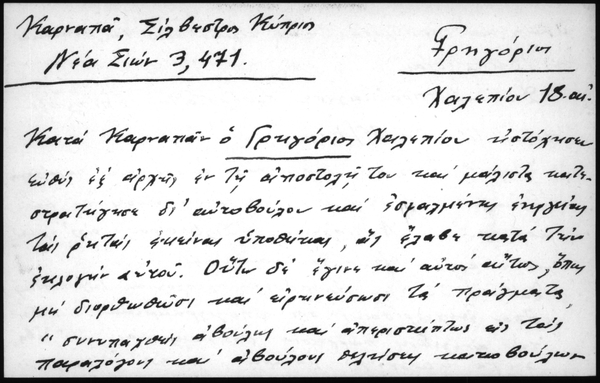 Καρναπᾶ, Σίλβεστρος Κύπριος
Νέα Σιών 3, 471.
Γρηγόριος
Χαλεπίου 18. αἰ.
Κατά Καρναπᾶν ὁ Γρηγόριος Χαλεπίου ἠστόχησεν
εὐθύς ἐξ ἀρχῆς ἐν τῇ ἀποστολῇ του καί μάλιστα κατε-
στρατήγησε δι' αὐτοβούλου καί ἐσφαλμένης ἐνεργείας
τάς ῥητάς ἐκείνας ὑποθήκας, ἅς ἔλαβε κατά τήν
ἐκλογήν αὐτοῦ. Οὕτω δέ ἔγινε καί αὐτός αἴτιος, ὅπως
μή διορθωθῶσι καί εἰρηνεύσωσι τά πράγματα,
"συνυπαχθείς ἀβούλως καί ἀπερισκέπτως εἰς τάς
παραλόγους καί ἀβούλους θελήσεις